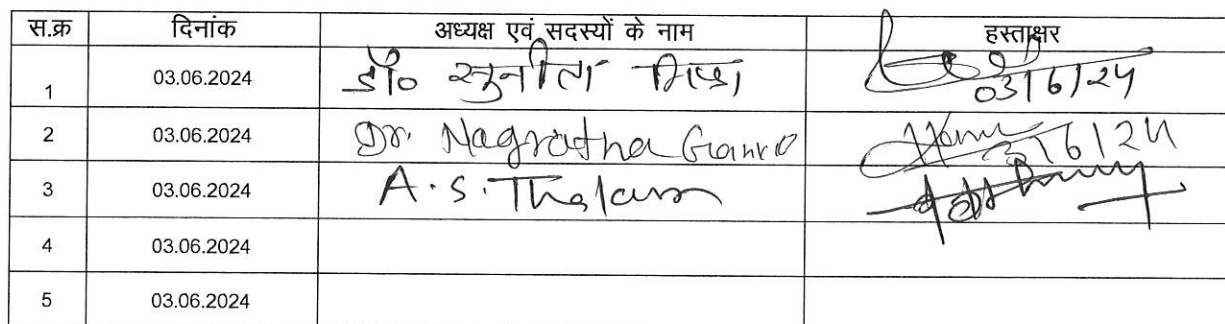 स.क्र दिनांक अध्यक्ष एवं सदस्यों के नाम हस्ताक्षर
1 03.06.2024 डॉ० सुनीता मिश्रा 03/6/24
2 03.06.2024 Dr. Nagratna 3/6/24
3 03.06.2024 A. S.
4 03.06.2024
5 03.06.2024